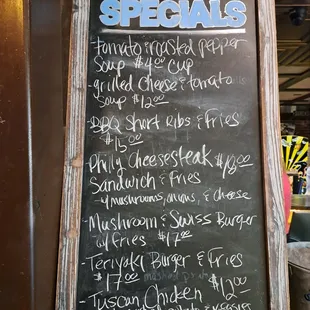 SPECIALS
Tomato & roasted pepper
Soup $4.00 cup
- grilled Cheese & tomato
Soup $12.00
- BBQ Short Ribs & Fries
$15.00
Philly Cheesesteak $18.00
Sandwich & Fries
w/ mushrooms, onions, & cheese
- Mushroom & Swiss Burger
w/ fries $17.00
- Teriyaki Burger & Fries
$17.00
- Tuscan Chicken $12.00